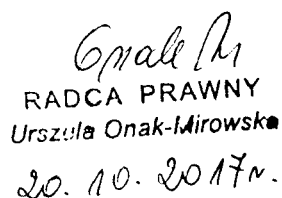 Onak M
RADCA PRAWNY
Urszula Onak-Mirowska
20. 10. 2017r.